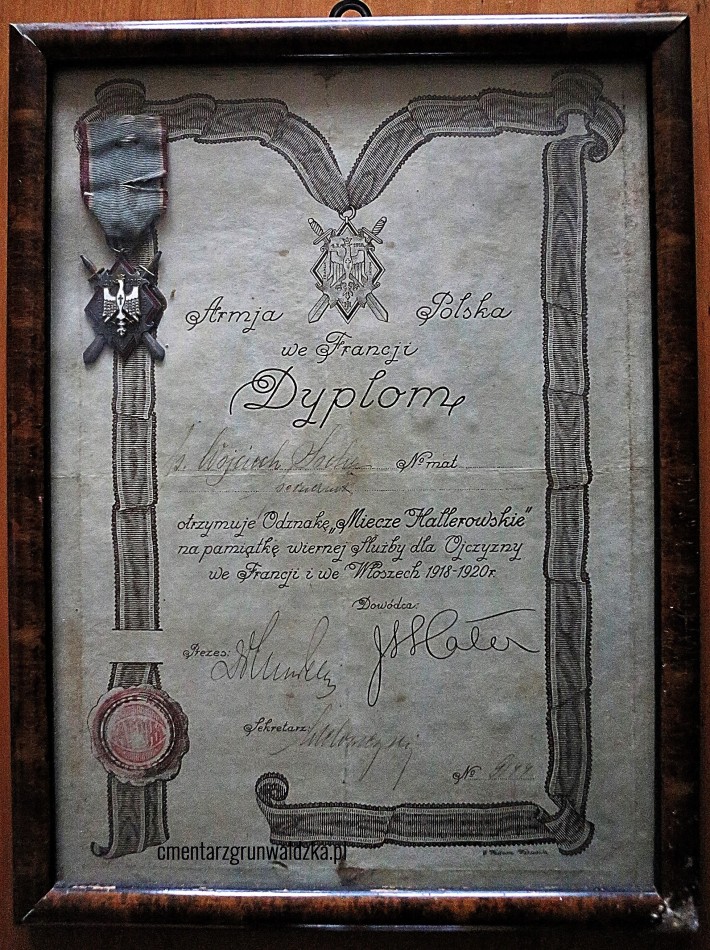 Armja Polska
we Francji
Dyplom
Wojciech № mat
otrzymuje Odznakę „Miecze Hallerowskie"
na pamiątkę wiernej Służby dla Ojczyzny
we Francji i we Włoszech 1918-1920r.
Dowódca:
Prezes:
Sekretarz:
№
cmentarzgrunwaldzka.pl